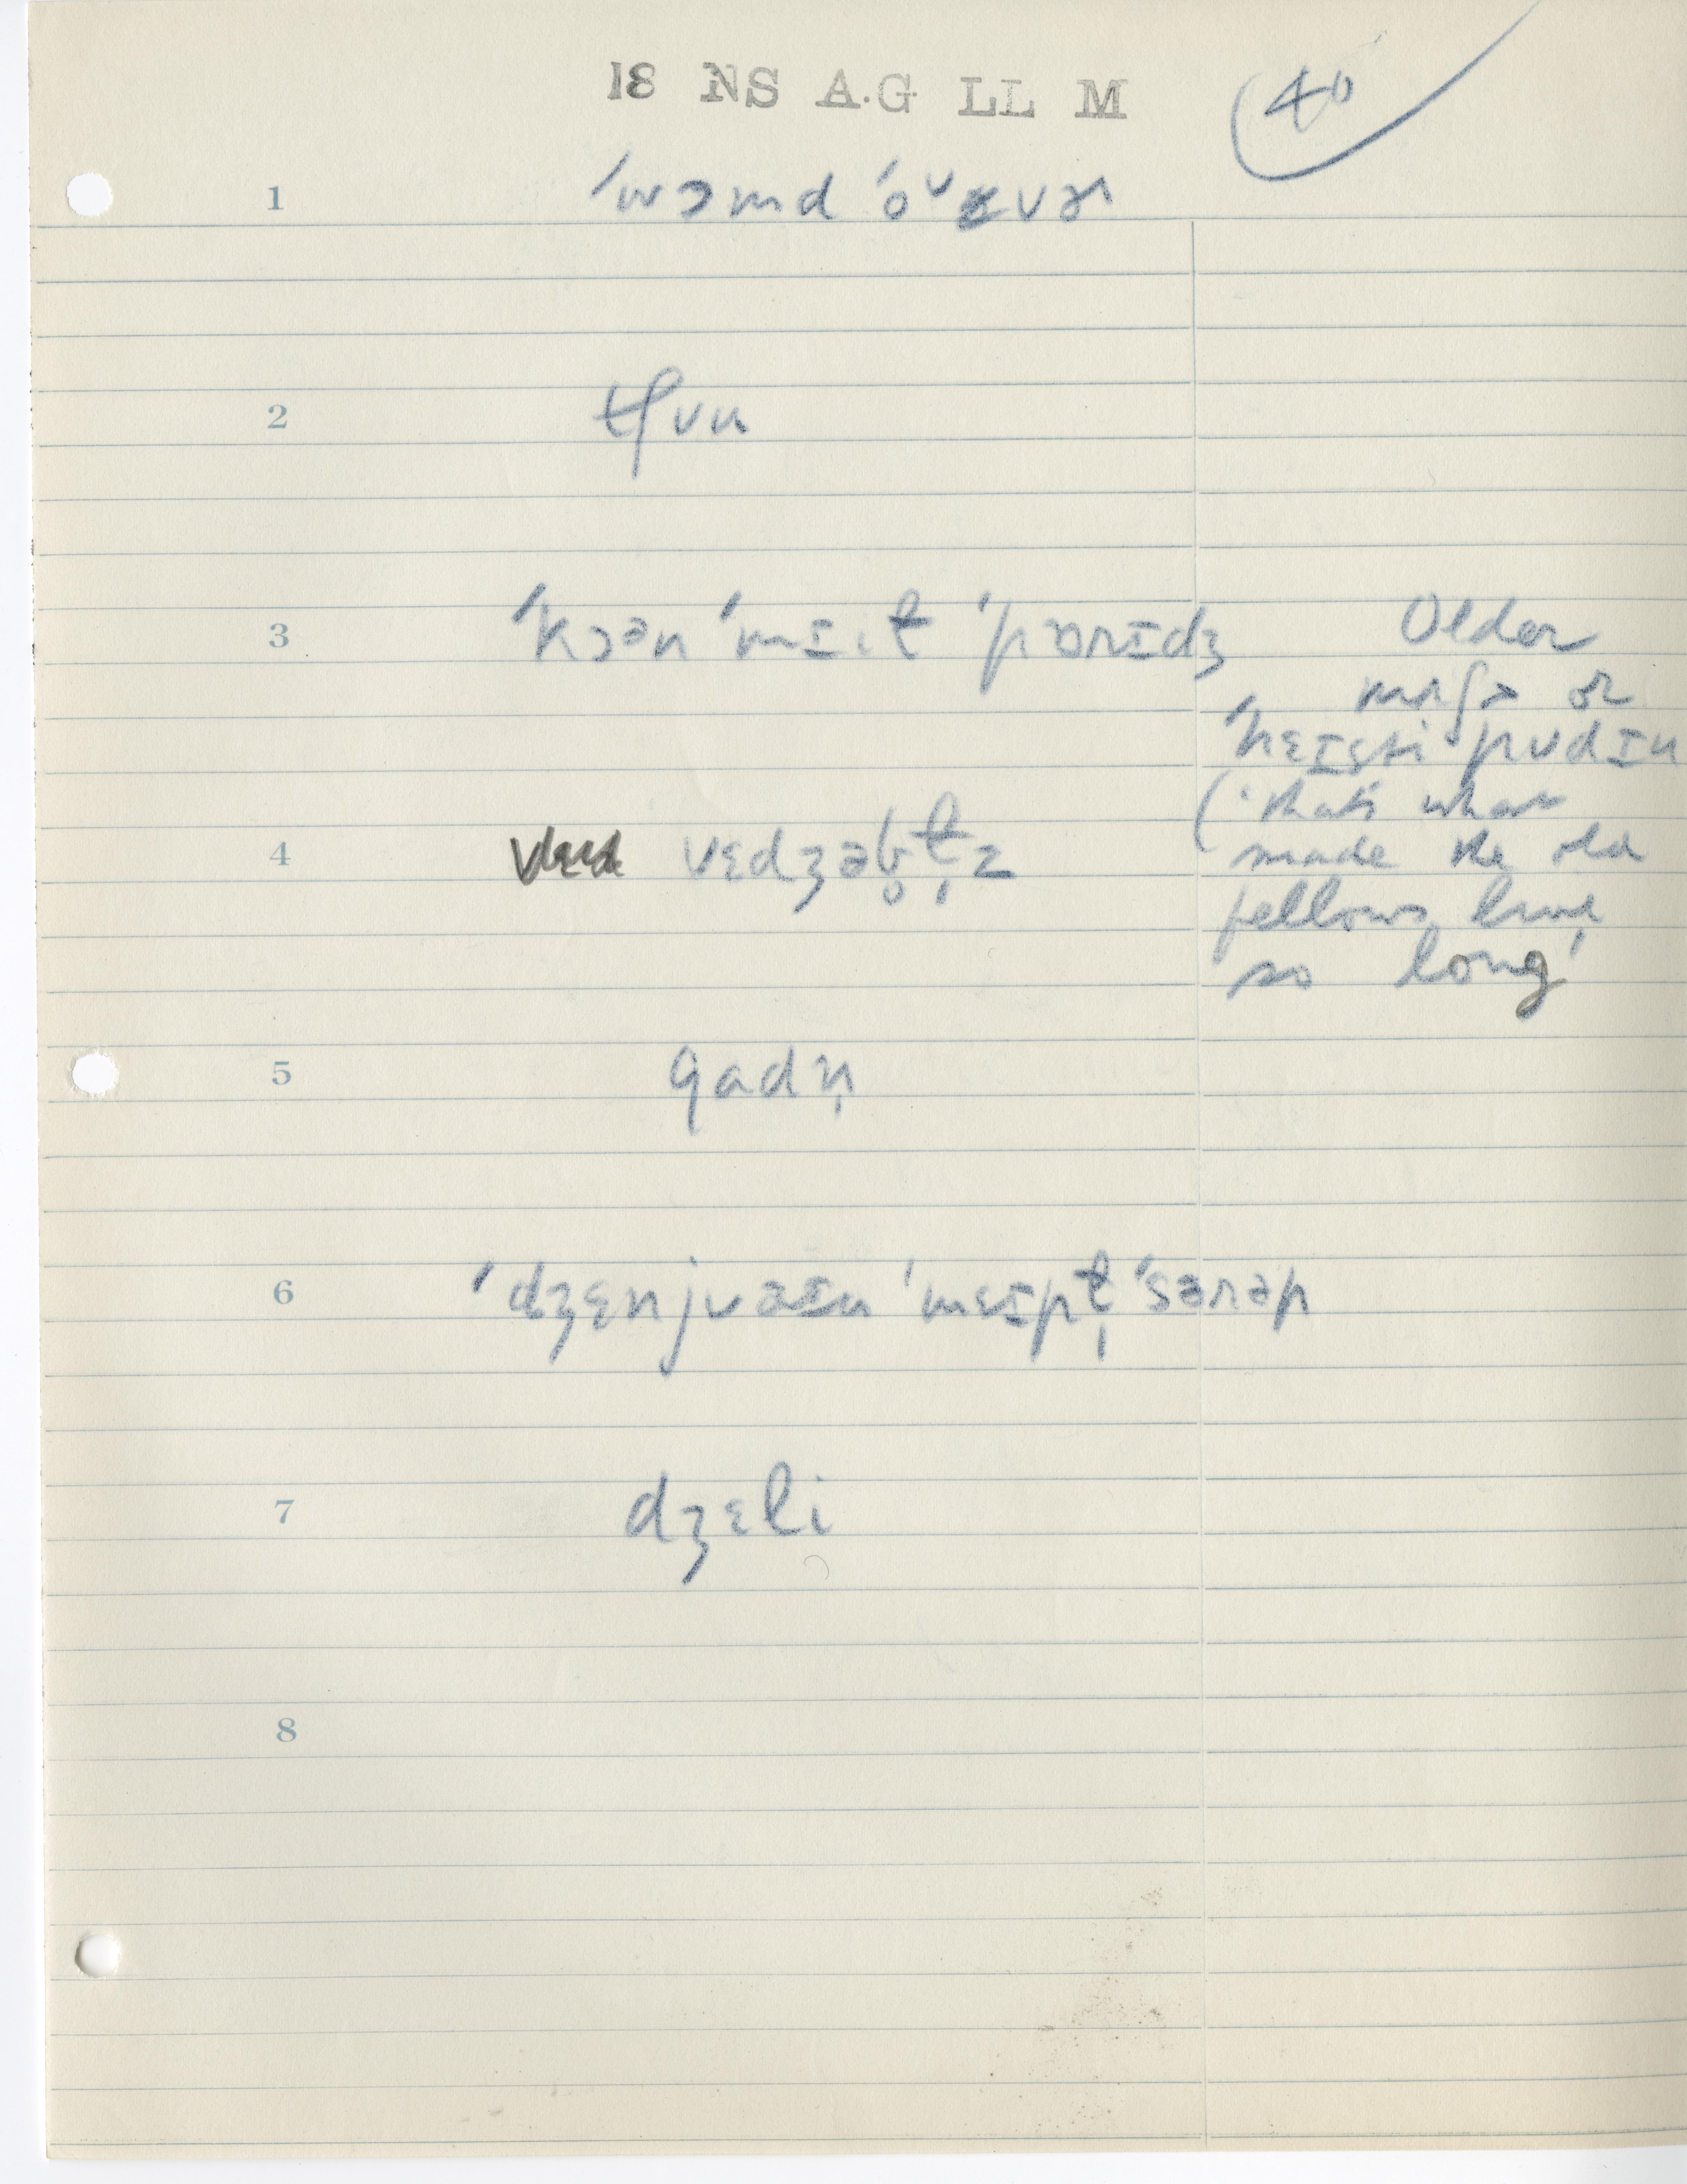 18 NS A.G LL M
40
1 ˈwɔmd ˈoᵛvɚ
2 tʃuu
3 ˈkɔən ˈmɪit ˈpɔrɪdʒ
Older
mʌʃ > or
ˈheɪsti pudɪn
('that's what
made the old
fellows live
so long'
4 vɛdʒəb̥t̩z
5 gadn̩
6 ˈdʒɛnjuəɪn ˈmeɪpt̩ ˈsərəp
7 dʒɛli
8